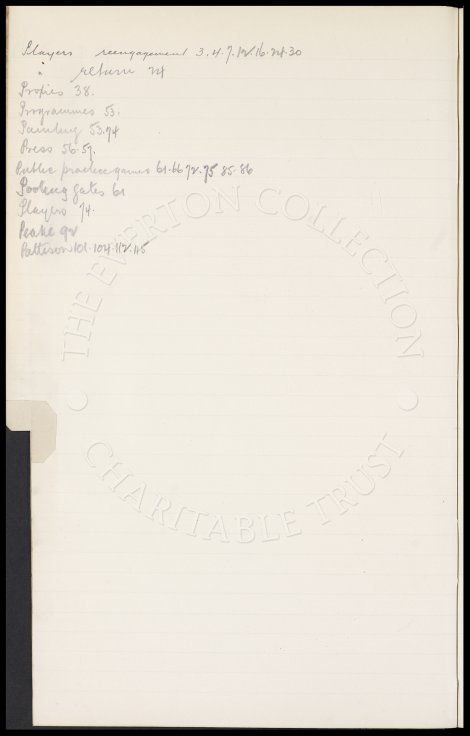 Players reengagement 3.4.7.12.16.24.30
" return 24
Proxies 38.
Programmes 53.
Painting 53.74
Press 56.57.
Public practice games 61.66 72.75 85.86
Pooling gates 61
Players 74.
Peake 92
Pattison 101.104.112.115
THE EVERTON COLLECTION
CHARITABLE TRUST